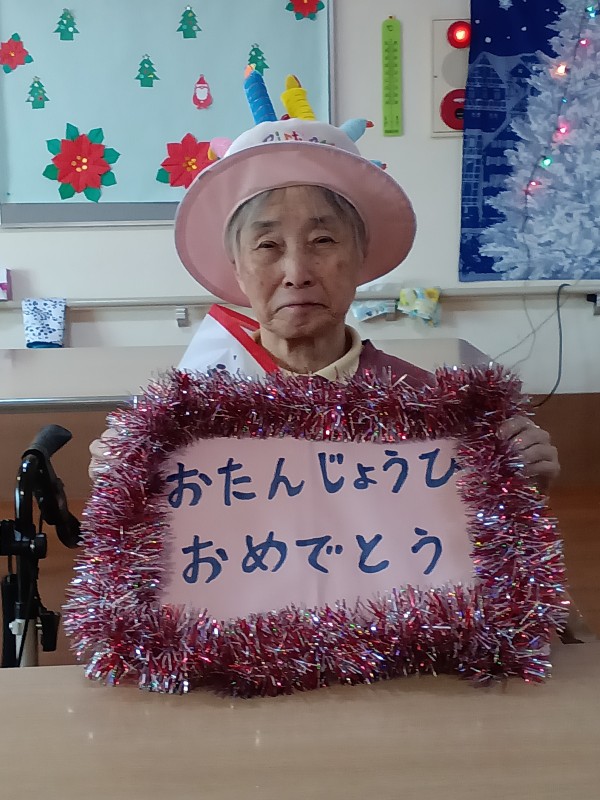 おたんじょうひ
おめでとう